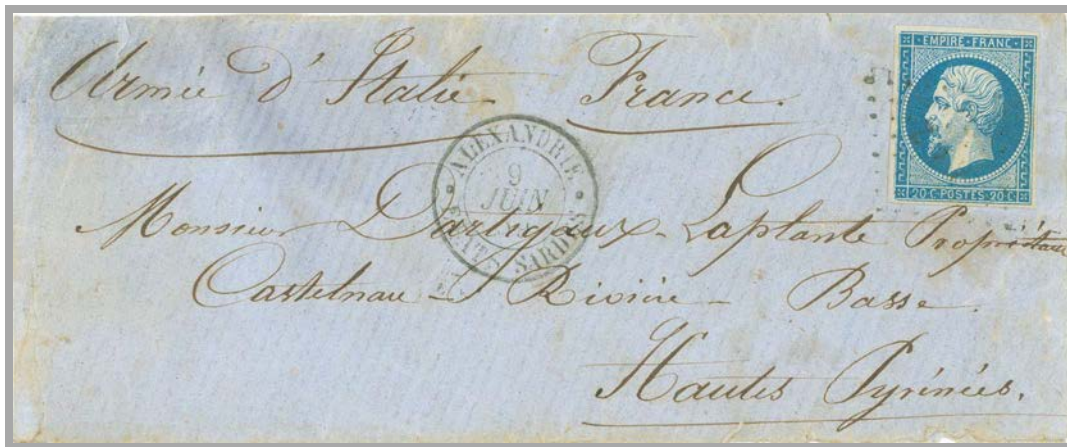 Armée d'Italie - France.
EMPIRE · FRANC ·
20 C · POSTES · 20 C
ALEXANDRIE
9
JUIN
ETATS SARDES
Monsieur Dartigaux-Laplante Propriétaire
Castelnau - Rivière - Basse
Hautes Pyrénées.